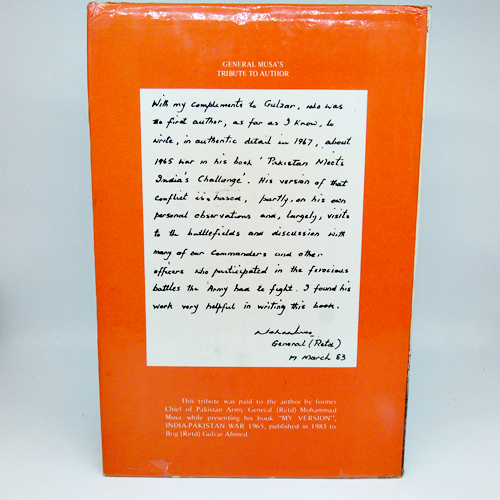 GENERAL MUSA'S
TRIBUTE TO AUTHOR
With my complements to Gulzar, who was
the first author, as far as I know, to
write, in authentic detail in 1967, about
1965 war in his book 'Pakistan Meets
India's Challange'. His version of that
conflict is based, partly, on his own
personal observations and, largely, visits
to the battlefields and discussion with
many of our Commanders and other
officers who participated in the ferocious
battles the Army had to fight. I found his
work very helpful in writing this book.
General (Retd)
March 83
This tribute was paid to the author by former
Chief of Pakistan Army General (Retd) Mohammad
Musa while presenting his book "MY VERSION",
INDIA-PAKISTAN WAR 1965, published in 1983 to
Brig (Retd) Gulzar Ahmed.